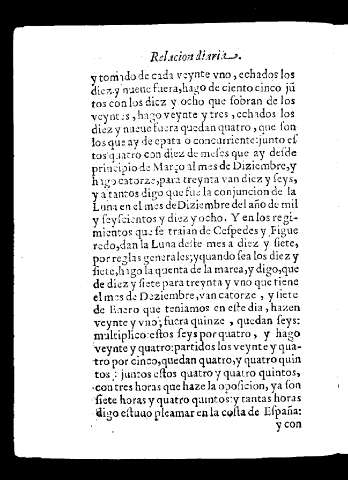 Relacion diaria.
y tomado de cada veynte vno, echados los
diez y nueue fuera, hago de ciento cinco jũ
tos con los diez y ocho que sobran de los
veyntes, hago veynte y tres, echados los
diez y nueue fuera quedan quatro, que son
los que ay de epata o concurriente: junto es
tos quatro con diez de meses que ay desde
principio de Março al mes de Diziembre, y
hago catorze, para treynta van diez y seys,
y a tantos digo que fue la conjuncion de la
Luna en el mes de Diziembre del año de mil
y seyscientos y diez y ocho. Y en los regi-
mientos que se traian de Cespedes y Figue
redo, dan la Luna deste mes a diez y siete,
por reglas generales; y quando sea los diez y
siete, hago la quenta de la marea, y digo, que
de diez y siete para treynta y vno que tiene
el mes de Deziembre, van catorze, y siete
de Enero que teniamos en este dia, hazen
veynte y vno; fuera quinze, quedan seys:
multiplico estos seys por quatro, y hago
veynte y quatro: partidos los veynte y qua-
tro por cinco, quedan quatro, y quatro quin
tos: juntos estos quatro y quatro quintos,
con tres horas que haze la oposicion, ya son
siete horas y quatro quintos: y tantas horas
digo estuuo pleamar en la costa de España:
y con